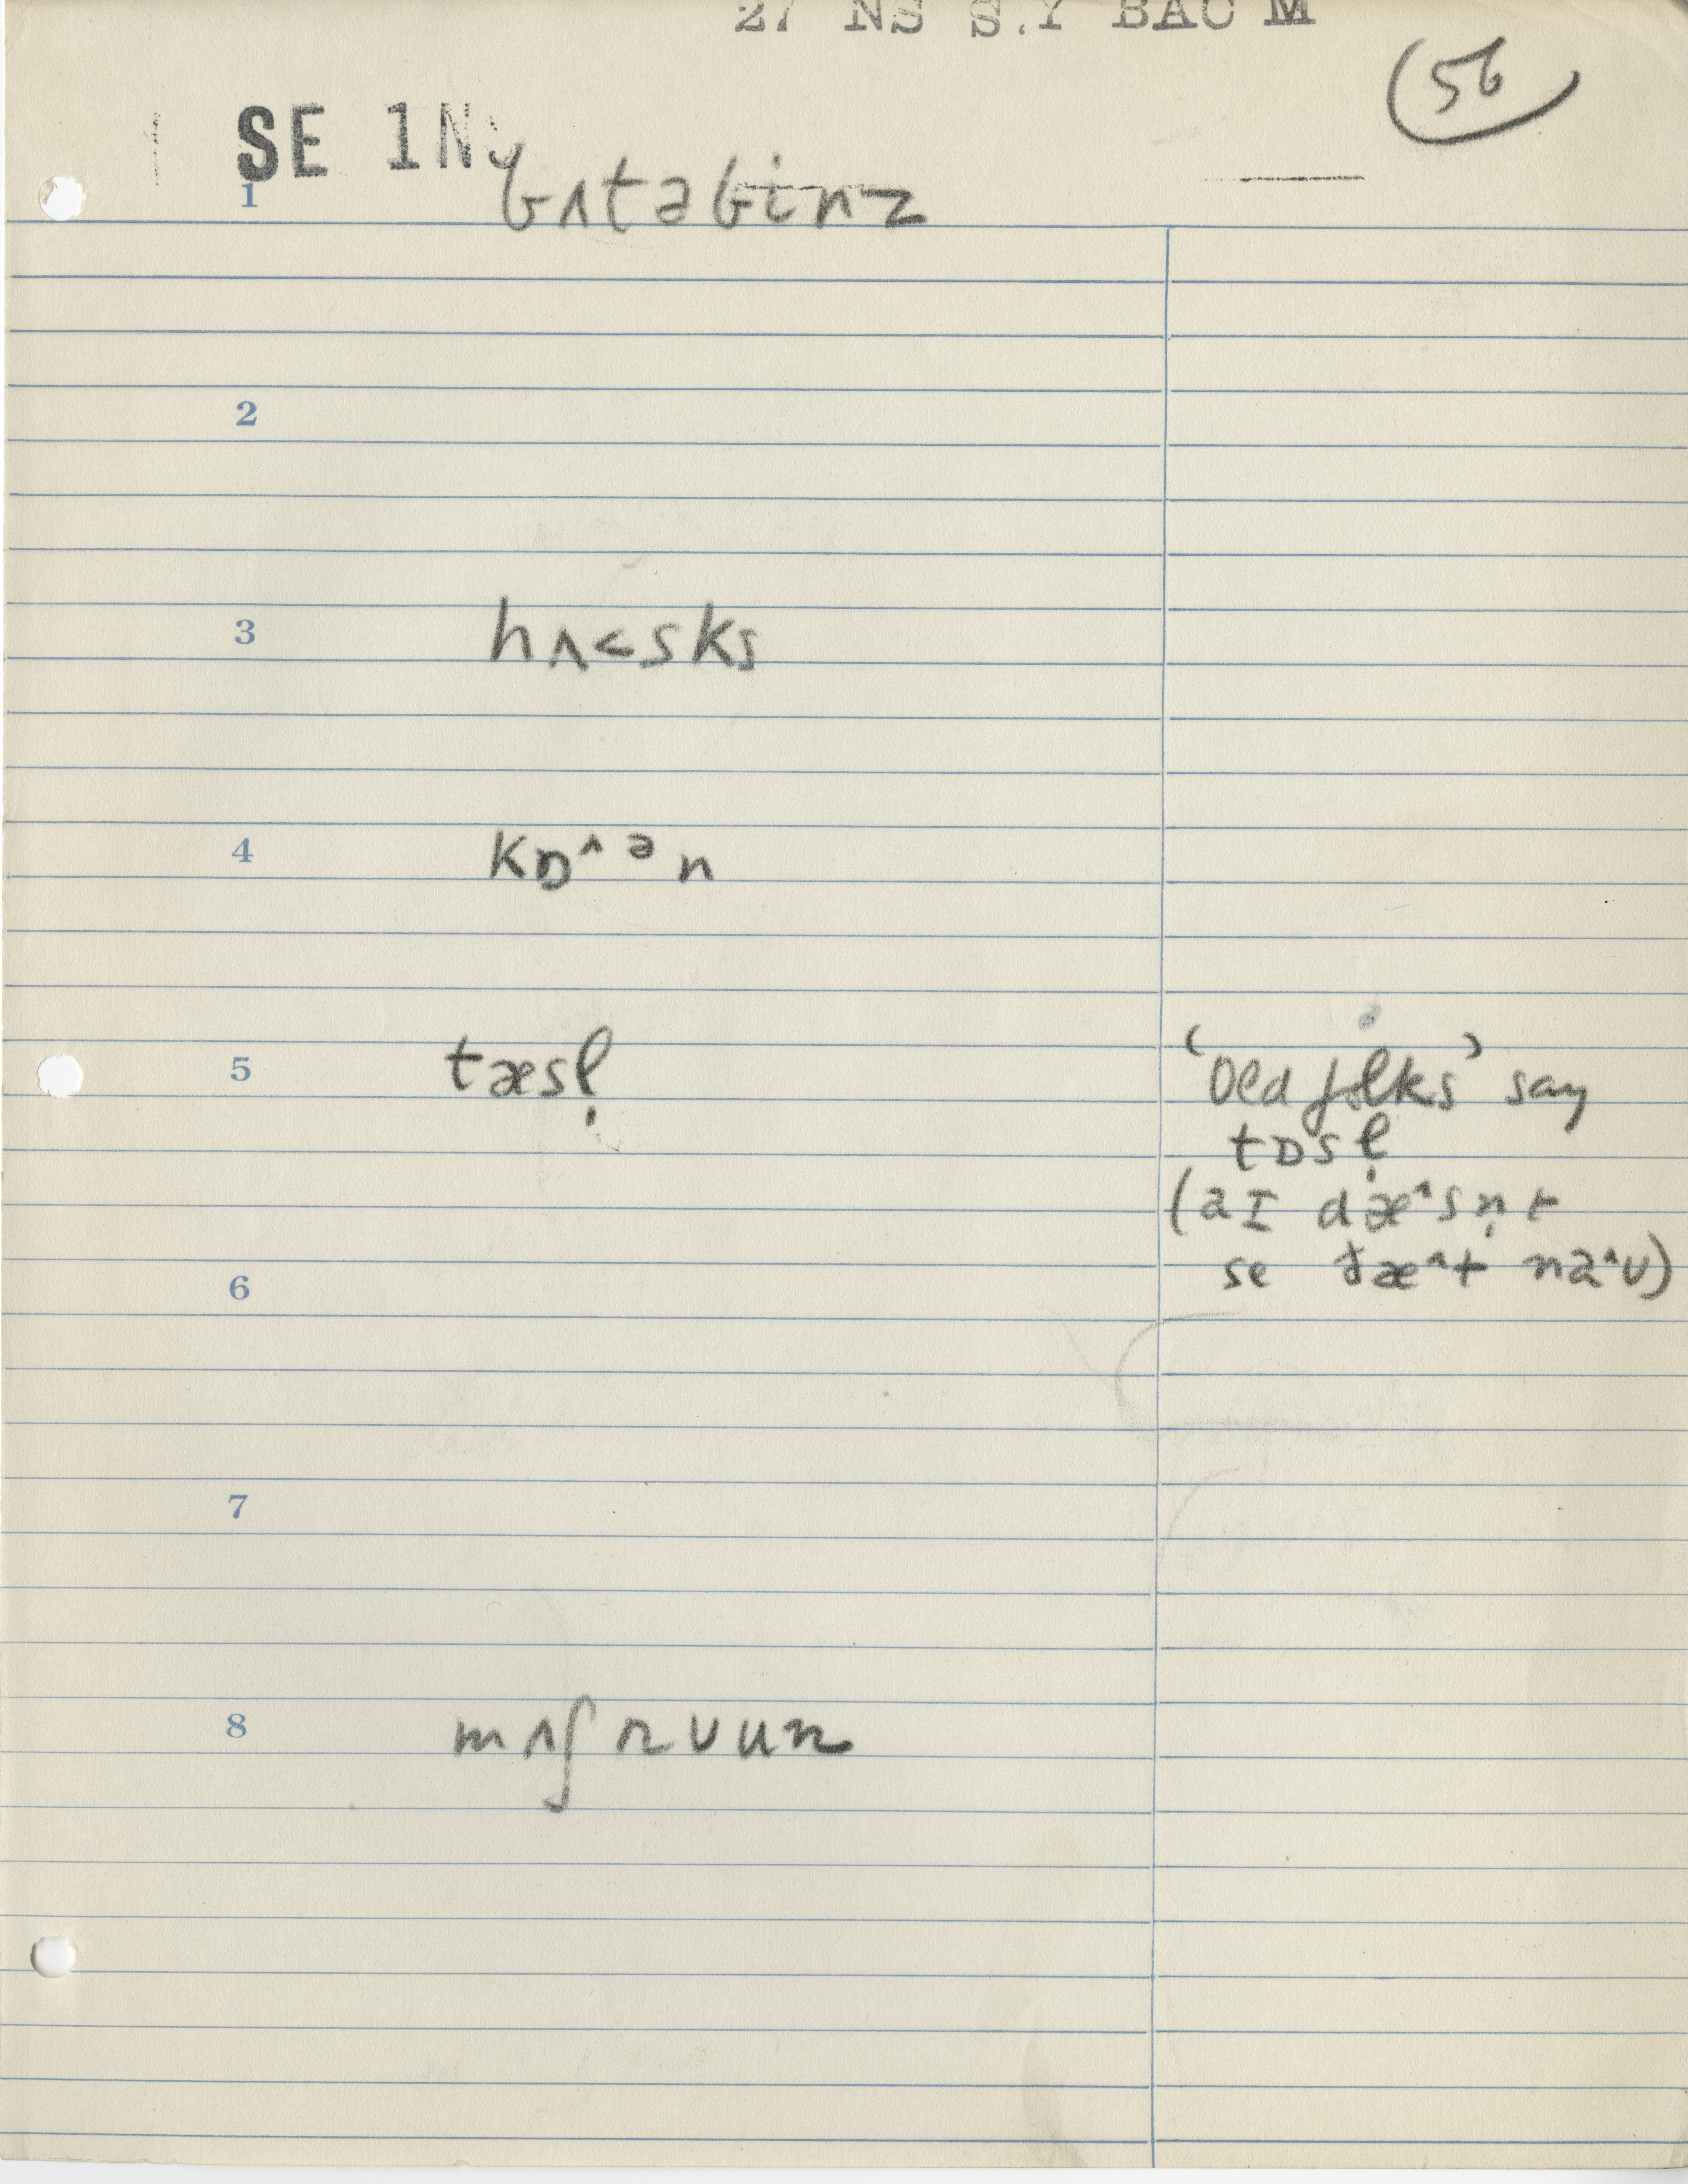 27 NS S.Y BAC M
56
SE 1NS
1 bʌtəbinz
2
3 hʌ<sks
4 kɒ^ ə n
5 tæsl̩
'Old folks' say
tɒsl̩
(aɪ dæ^sn̩t
se ðæ^t na^ʊ)
6
7
8 mʌʃrʊum